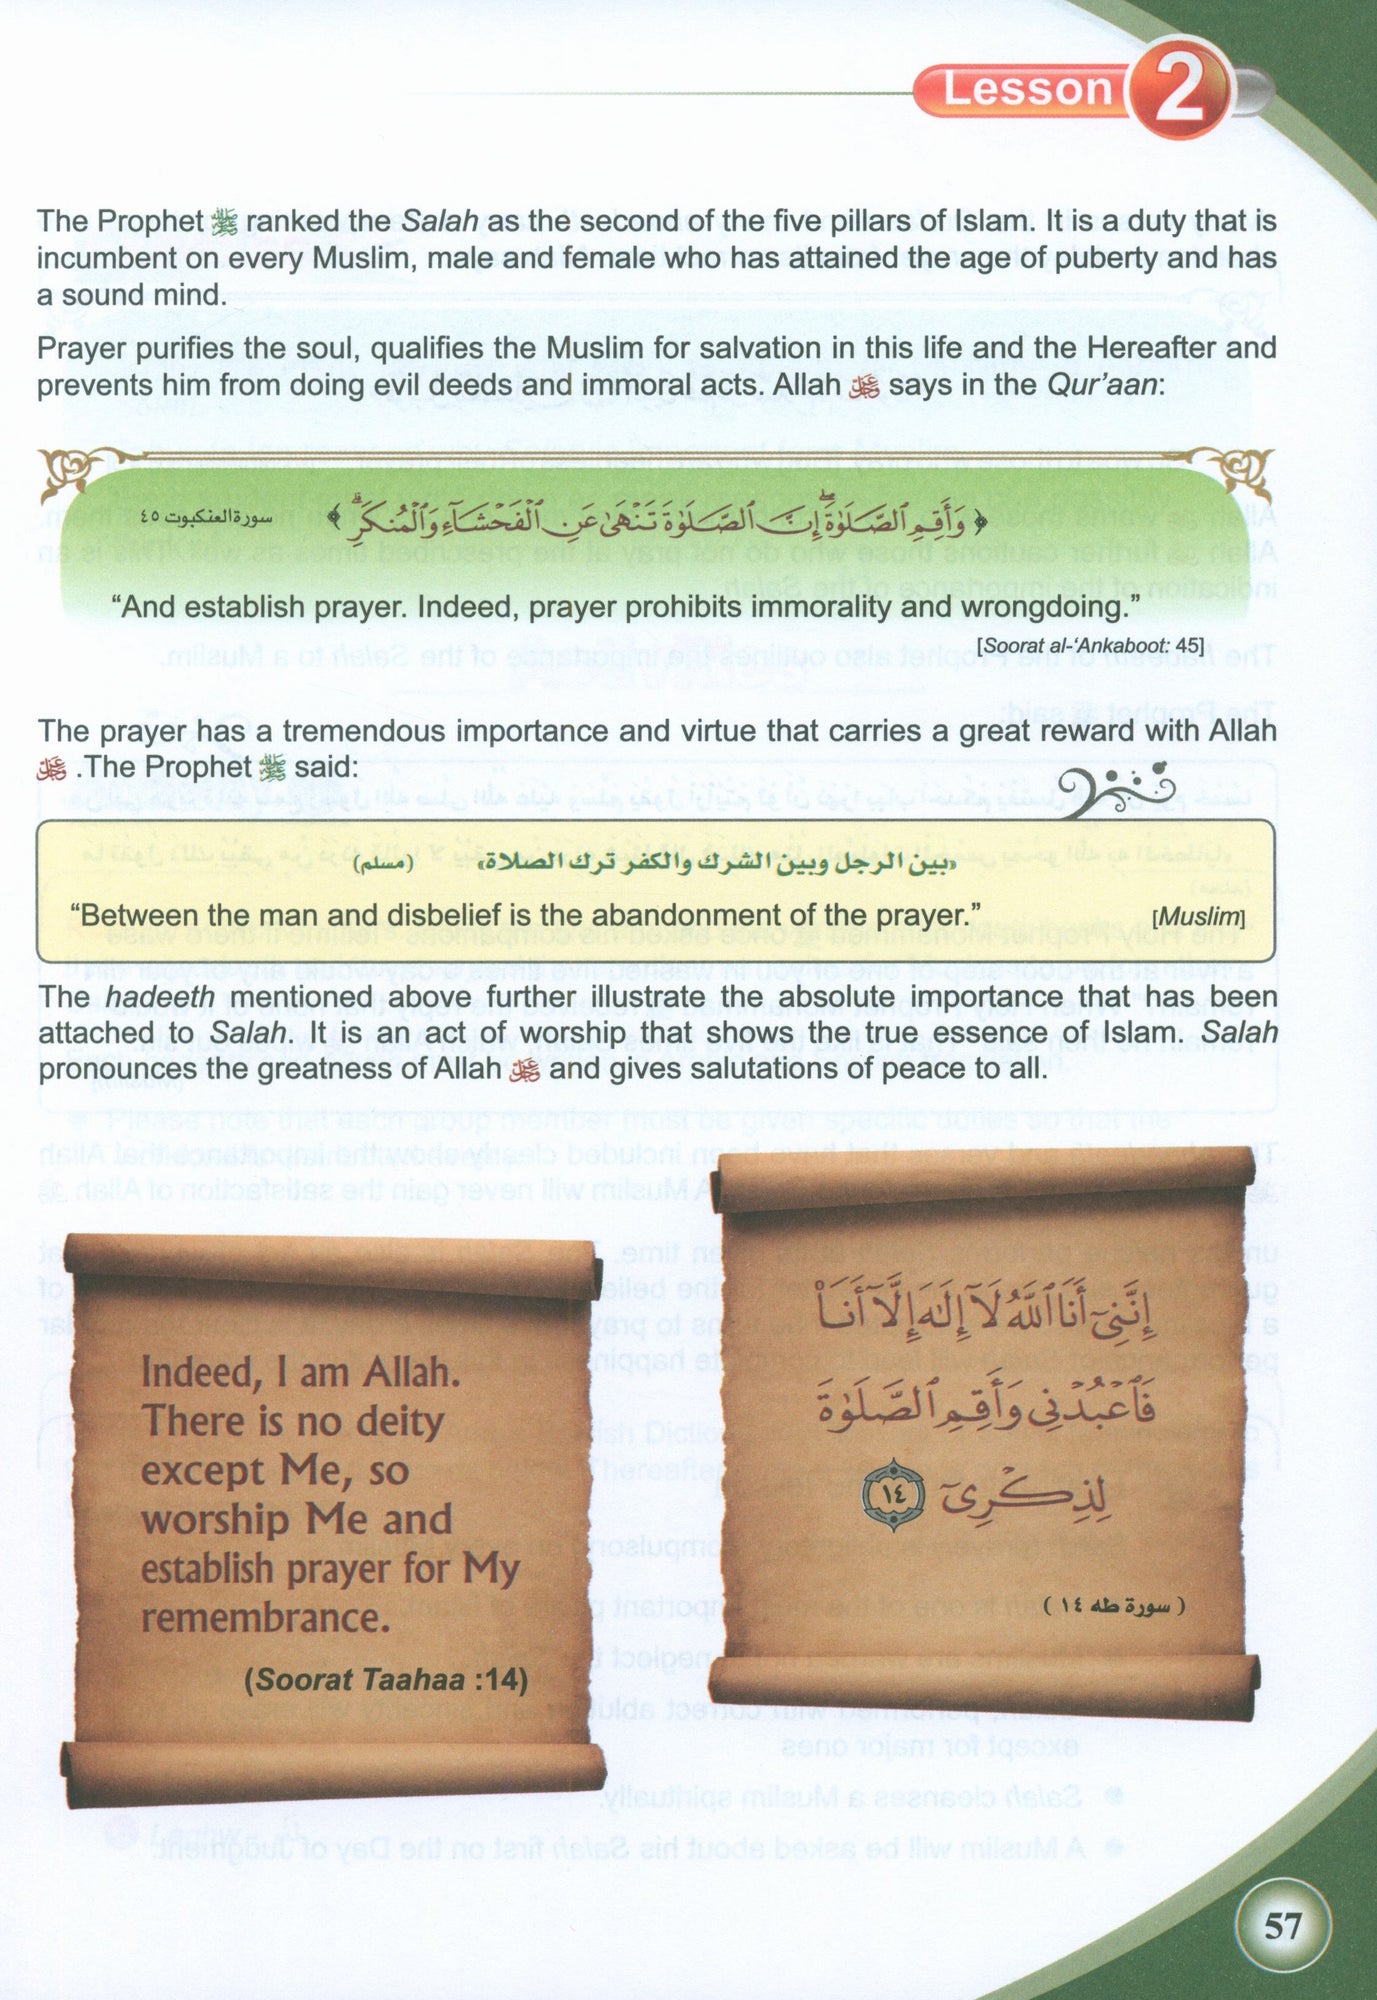 Lesson 2
The Prophet ﷺ ranked the Salah as the second of the five pillars of Islam. It is a duty that is
incumbent on every Muslim, male and female who has attained the age of puberty and has
a sound mind.
Prayer purifies the soul, qualifies the Muslim for salvation in this life and the Hereafter and
prevents him from doing evil deeds and immoral acts. Allah ﷻ says in the Qur’aan:
﴿ وَأَقِمِ ٱلصَّلَوٰةَۖ إِنَّ ٱلصَّلَوٰةَ تَنْهَىٰ عَنِ ٱلْفَحْشَآءِ وَٱلْمُنكَرِۗ ﴾ سورة العنكبوت ٤٥
“And establish prayer. Indeed, prayer prohibits immorality and wrongdoing.”
[Soorat al-‘Ankaboot: 45]
The prayer has a tremendous importance and virtue that carries a great reward with Allah
ﷻ .The Prophet ﷺ said:
«بين الرجل وبين الشرك والكفر ترك الصلاة» (مسلم)
“Between the man and disbelief is the abandonment of the prayer.” [Muslim]
The hadeeth mentioned above further illustrate the absolute importance that has been
attached to Salah. It is an act of worship that shows the true essence of Islam. Salah
pronounces the greatness of Allah ﷻ and gives salutations of peace to all.
Indeed, I am Allah.
There is no deity
except Me, so
worship Me and
establish prayer for My
remembrance.
(Soorat Taahaa :14)
إِنَّنِىٓ أَنَا ٱللَّهُ لَآ إِلَٰهَ إِلَّآ أَنَا۠
فَٱعْبُدْنِى وَأَقِمِ ٱلصَّلَوٰةَ
لِذِكْرِىٓ ١٤
( سورة طه ١٤ )
57